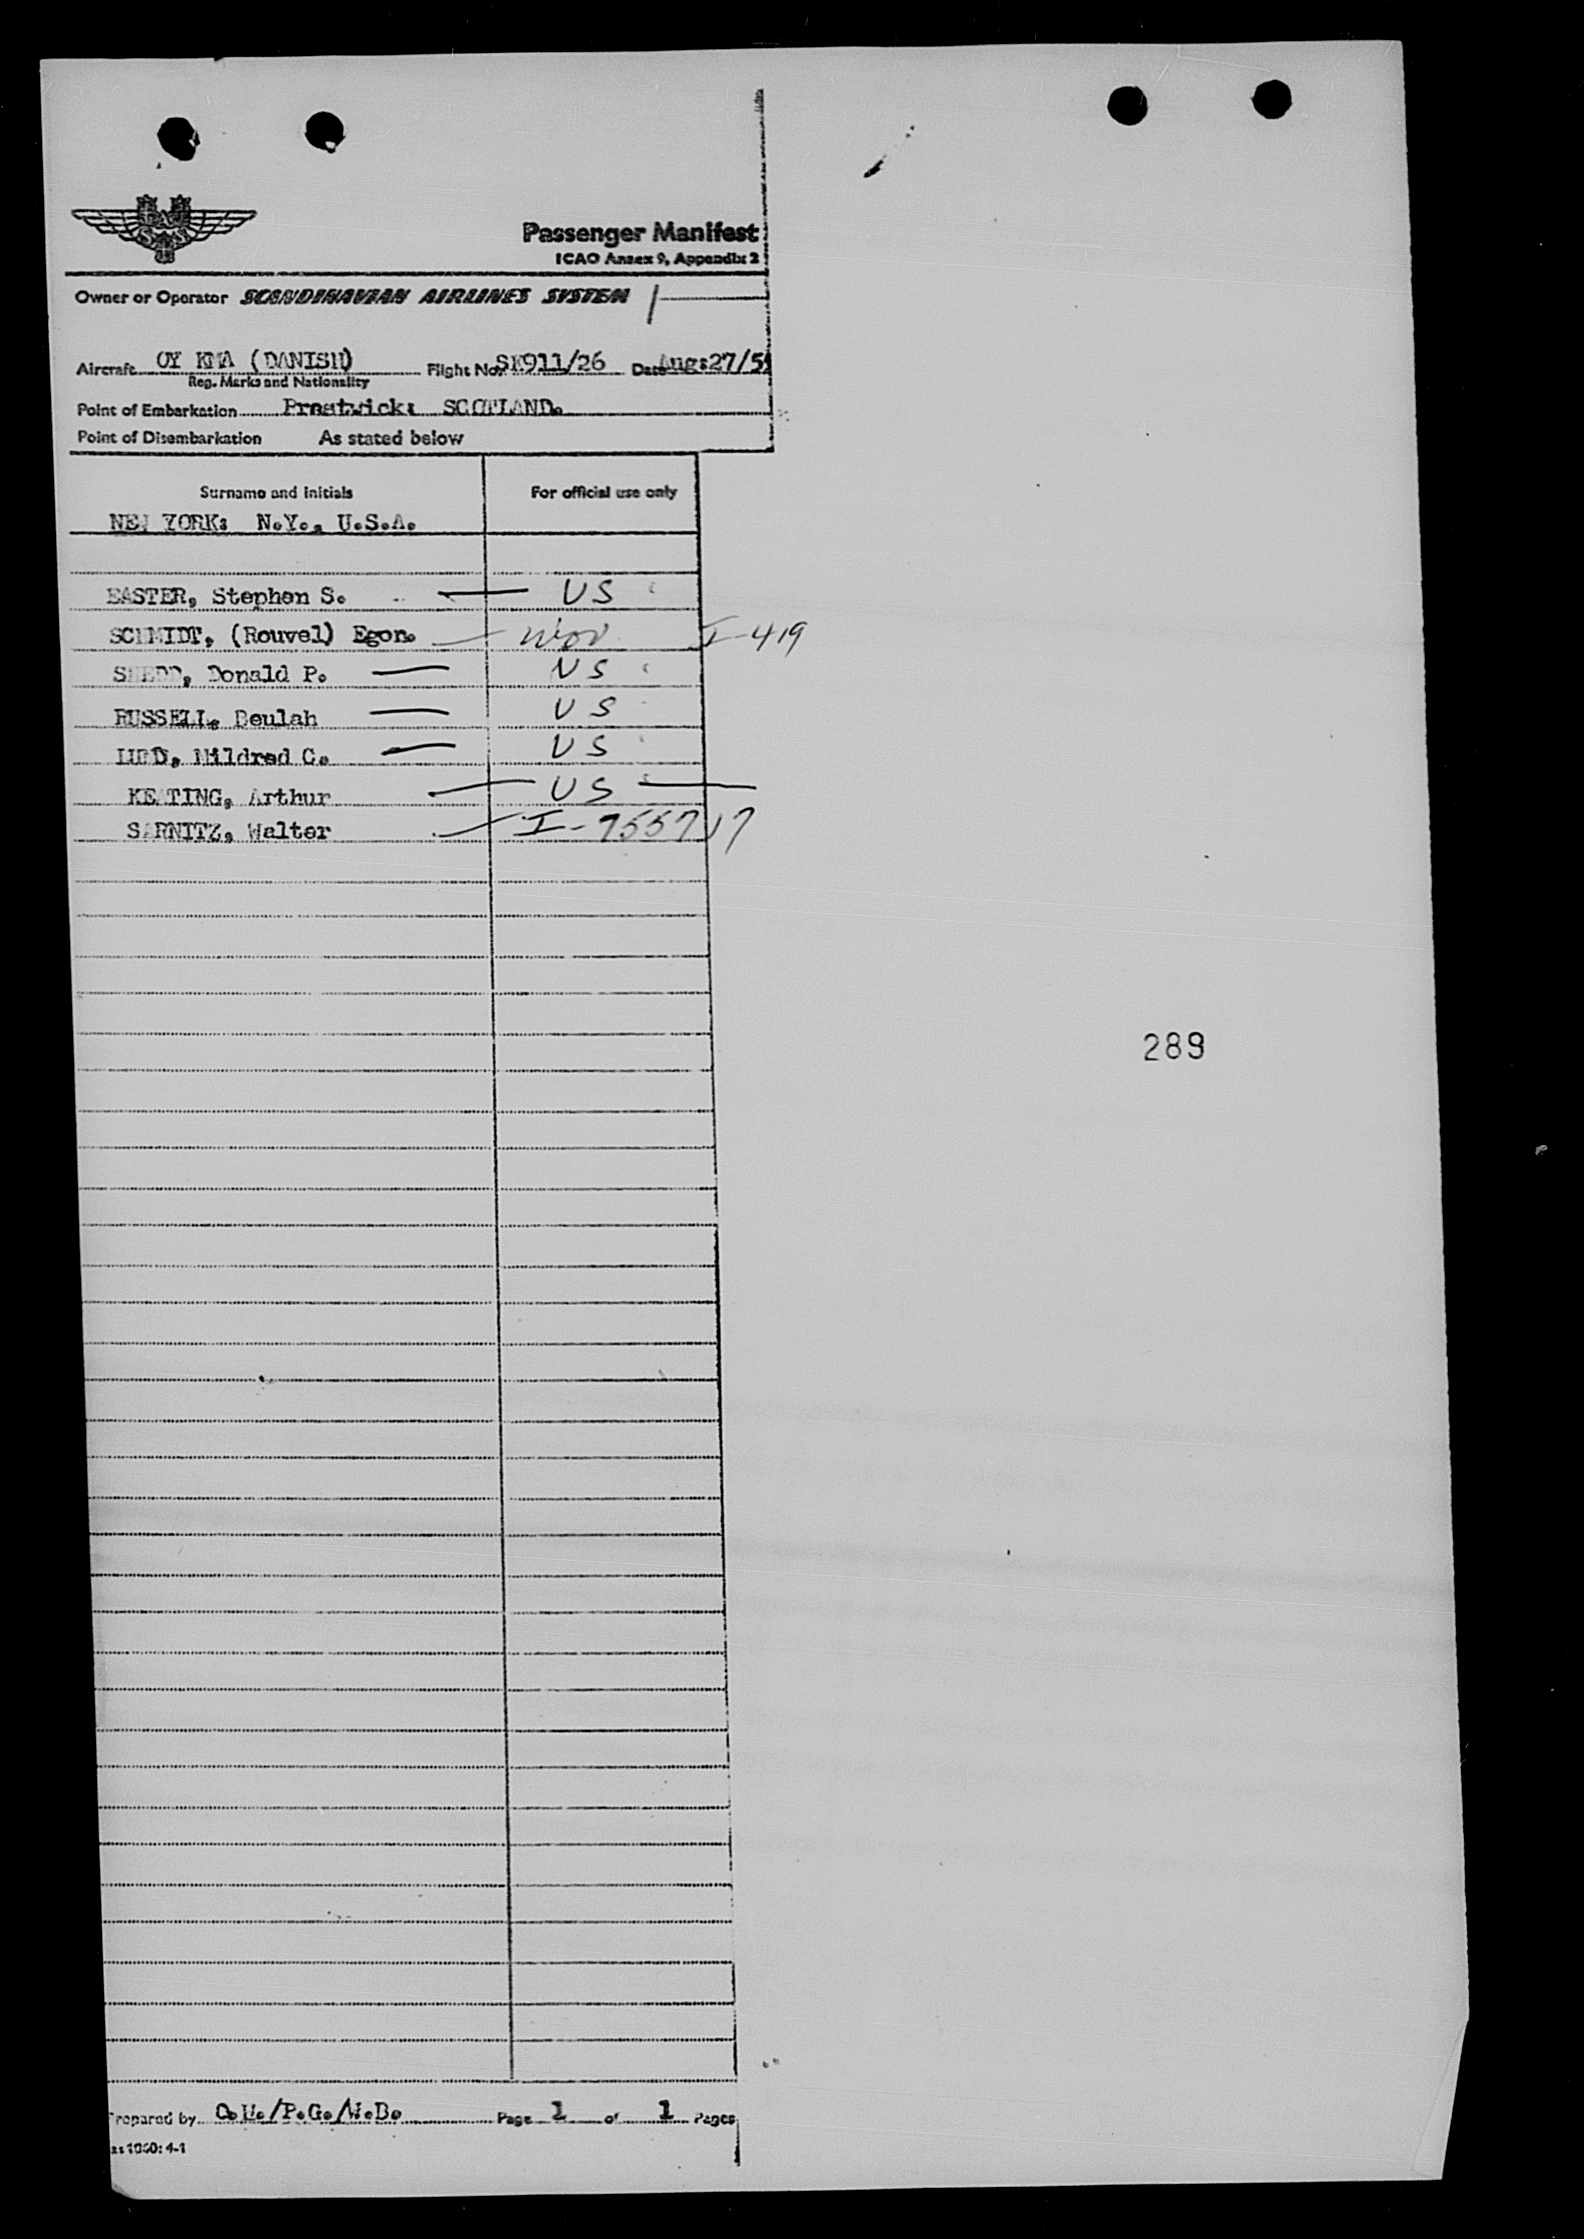 SAS
Passenger Manifest
ICAO Annex 9, Appendix 2
Owner or Operator SCANDINAVIAN AIRLINES SYSTEM
Aircraft OY KMA (DANISH) Flight No. SK911/26 Date Aug:27/5
Reg. Marks and Nationality
Point of Embarkation Prestwick: SCOTLAND.
Point of Disembarkation As stated below
Surname and initials For official use only
NEW YORK: N.Y., U.S.A.
EASTER, Stephen S. US
SCHMIDT, (Rouvel) Egon. I-419
Donald P. US
RUSSELL, Beulah US
Mildred C. US
KEATING, Arthur US
SARNITZ, Walter I-755717
289
Prepared by Page 1 of 1 Pages